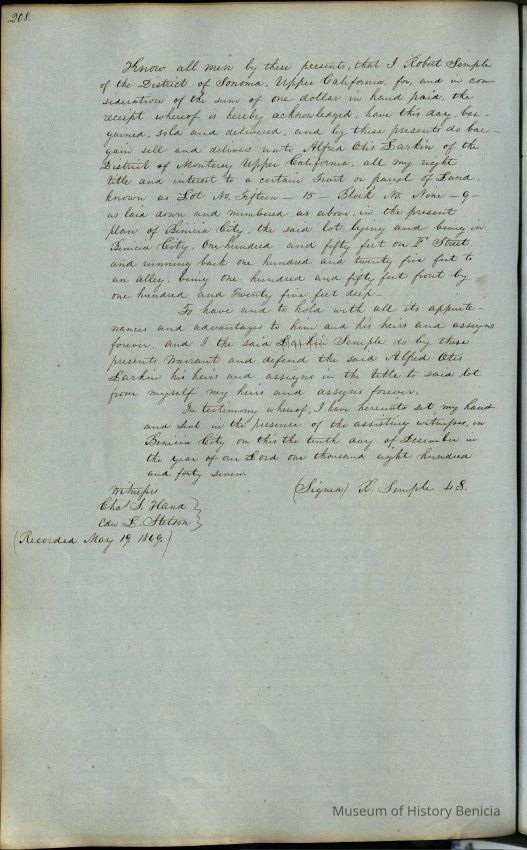 208.
Know all men by these presents, that I Robert Semple
of the District of Sonoma, Upper California, for, and in con-
sideration of the sum of one dollar in hand paid, the
receipt whereof is hereby acknowledged, have this day, bar-
gained, sold and delivered, and by these presents do bar-
gain sell and deliver unto Alfred Otis Larkin of the
District of Monterey Upper California, all my right
title and interest to a certain Tract or parcel of Land,
known as Lot No. Fifteen — 15 — Block No. Nine — 9 —
as laid down and numbered as above, in the present
plan of Benicia City, the said lot lying and being in
Benicia City, One hundred and fifty feet on Street,
and running back one hundred and twenty five feet to
an alley, being one hundred and fifty feet front by
one hundred and twenty five feet deep.—
To have and to hold with all its appurte-
nances and advantages to him and his heirs and assigns
forever, and I the said Semple do by these
presents warrant and defend the said Alfred Otis
Larkin his heirs and assigns in the title to said lot
from myself my heirs and assigns forever.
In testimony whereof, I have hereunto set my hand
and seal in the presence of the assisting witnesses, in
Benicia City on this the tenth day of December in
the year of our Lord one thousand eight hundred
and forty seven.
Witness (Signed) R. Semple
Chas S. Hand }
Edw L. Stetson }
(Recorded May 19, 1849.)
Museum of History Benicia